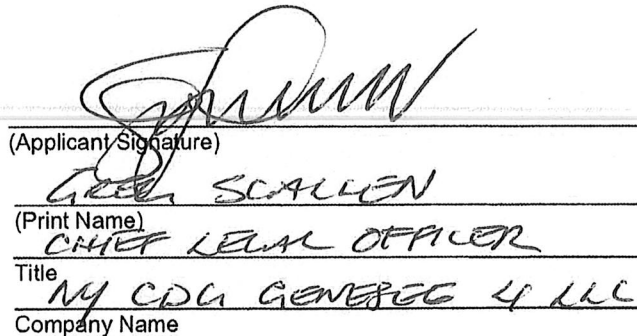 (Applicant Signature)
GREG SCALLEN
(Print Name)
CHIEF LEGAL OFFICER
Title
NY CDG GENESEE 4 LLC
Company Name